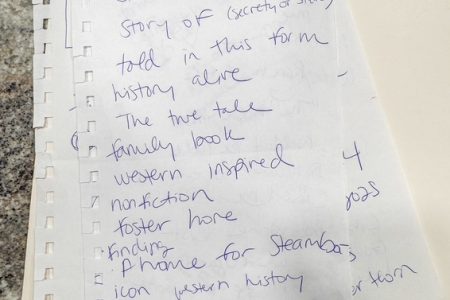 story of (secretly or
told in this form
history alive
The true tale
family book
western inspired
nonfiction
foster home
finding
A home for Steamboats
icon western history
4
or thorn